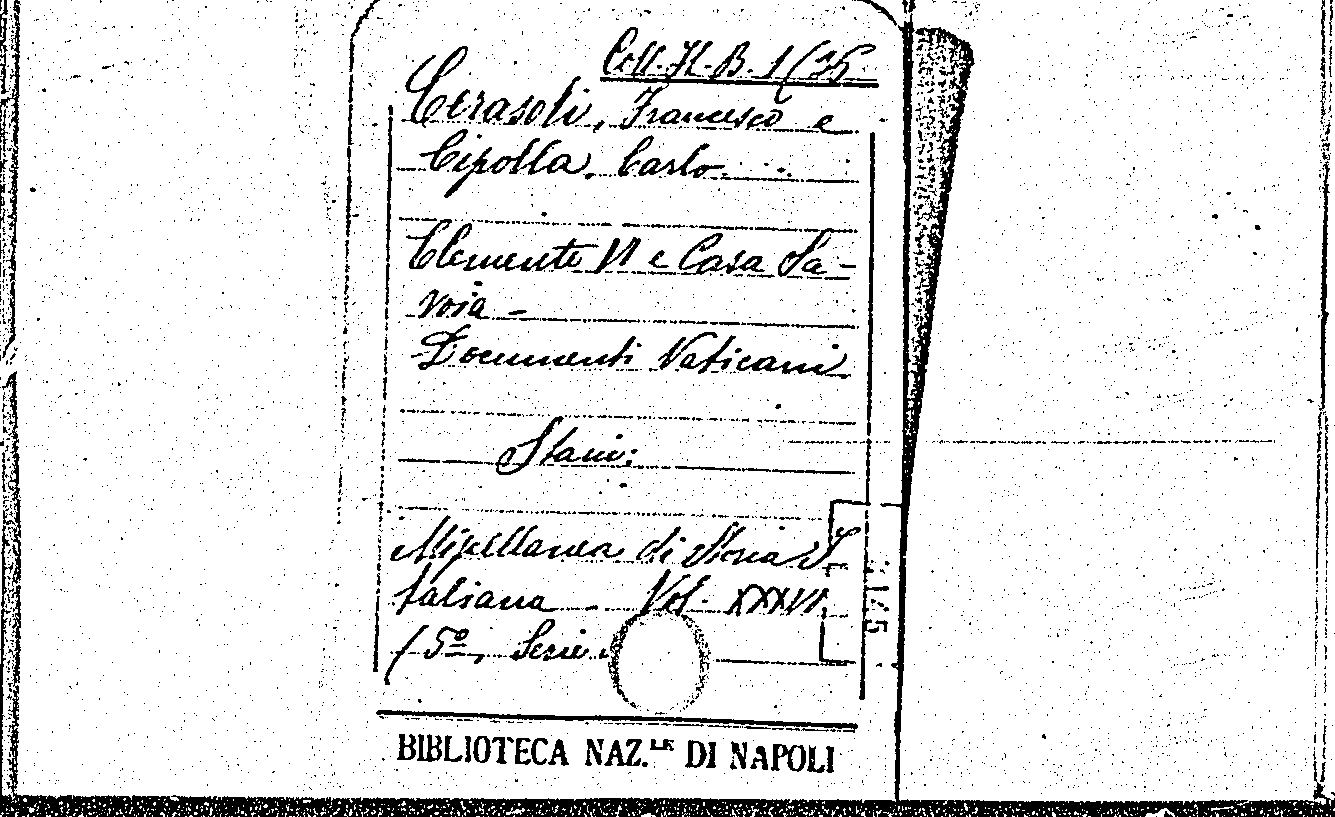 Coll. It. B. 1/35
Cerasoli, Francesco e
Cipolla, Carlo.
Clemente VI e Casa Sa-
voia -
Documenti Vaticani
Stani:
Miscellanea di Storia I-
taliana - Vol. XXXVI,
(5º, Serie
BIBLIOTECA NAZ.LE DI NAPOLI